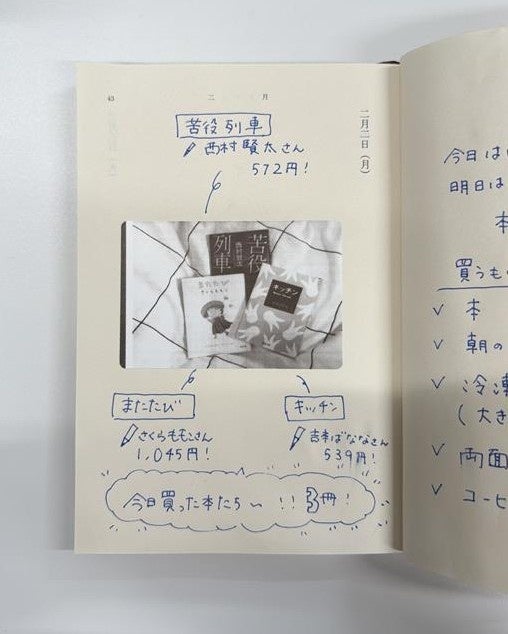 43
二月
二月二日（月）
苦役列車
西村賢太さん
572円！
苦役
列車
西村賢太
またたび
さくらももこ
キッチン
またたび
さくらももこさん
1,045円！
キッチン
吉本ばななさん
539円！
今日買った本たち〜!! 3冊！
今日は
明日は
本
買うもの
✓ 本
✓ 朝の
✓ 冷凍
（大き
✓ 両面
✓ コーヒ